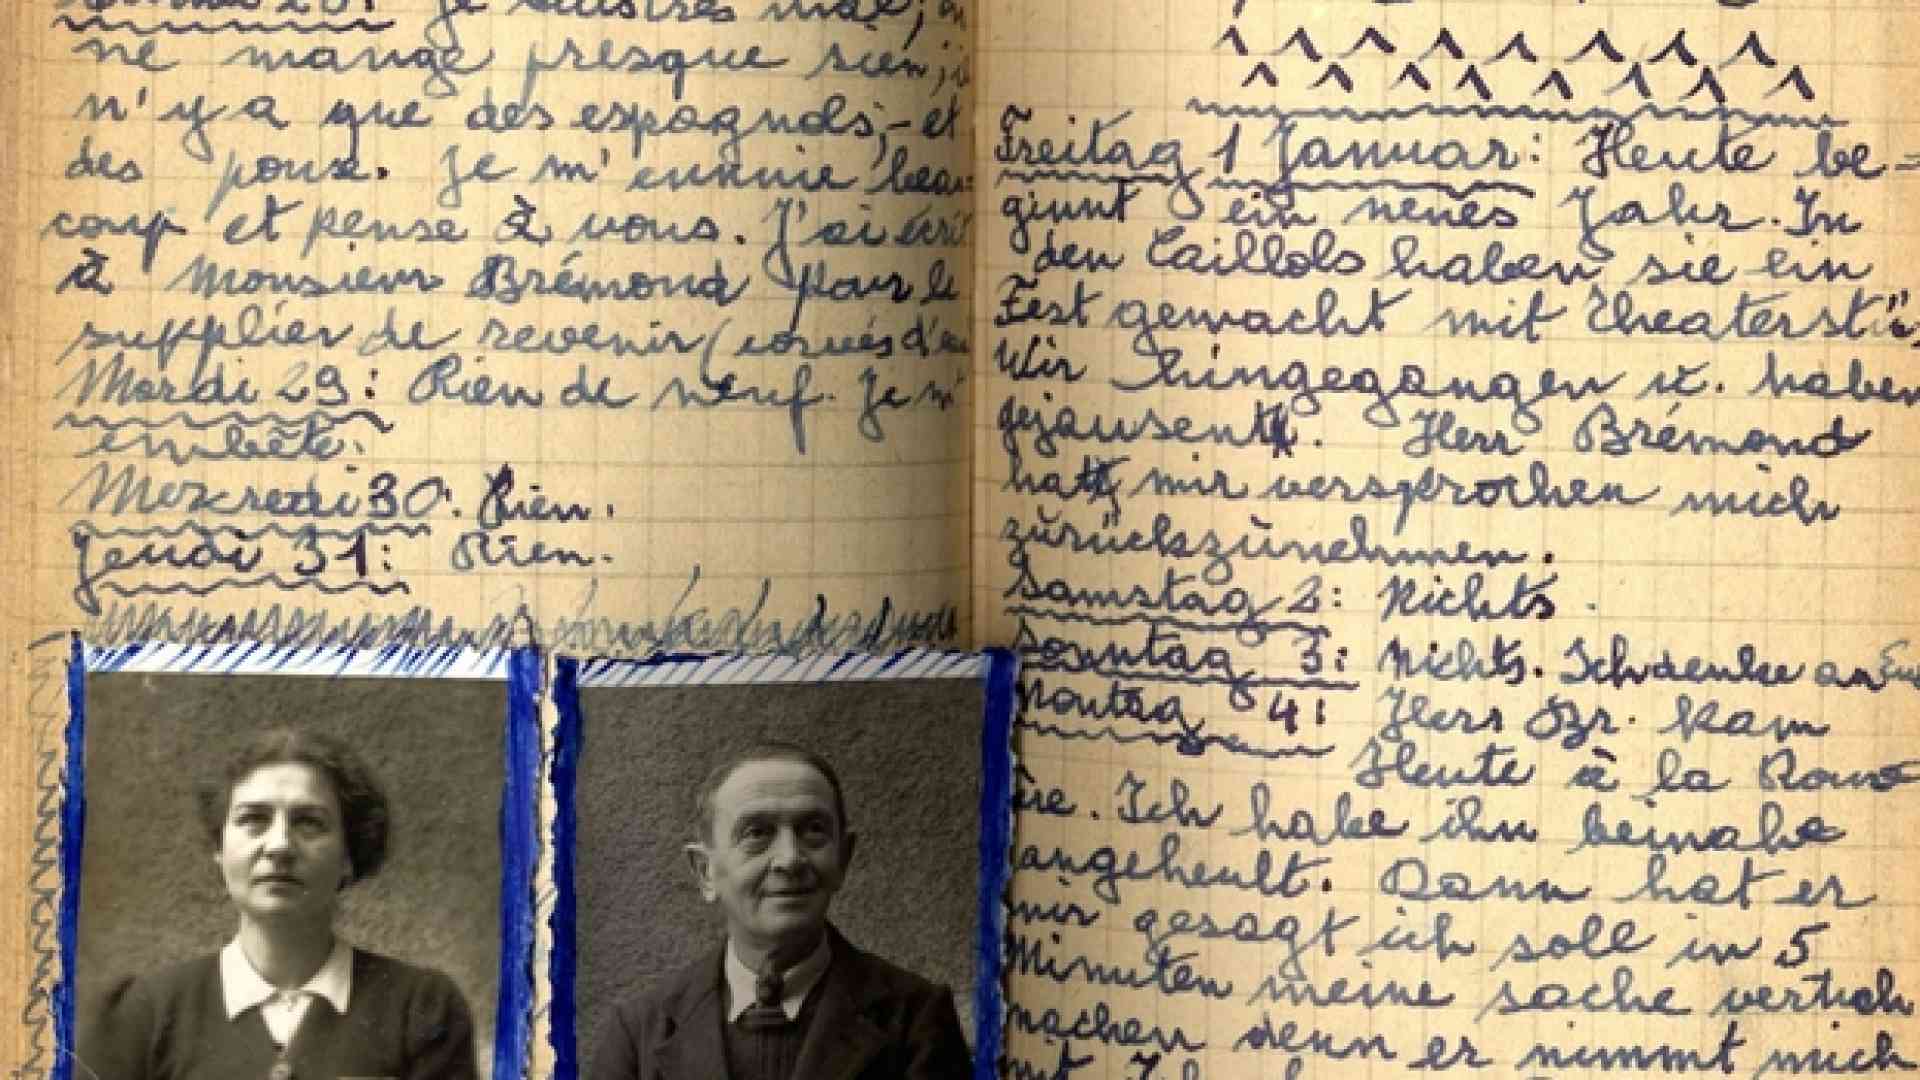 je suis très mal;
ne mange presque rien;
n'y a que des espagnols,- et
des poux. Je m'ennuie beau
coup et pense à vous. J'ai écrit
à Monsieur Brémond pour le
supplier de revenir (corvés d'eau
Mardi 29: Rien de neuf. Je m'
embête.
Mercredi 30: Rien.
Jeudi 31: Rien.
Freitag 1 Januar: Heute be=
ginnt ein neues Jahr. In
den Caillols haben sie ein
Fest gemacht mit Theaterstü
Wir hingegangen u. haben
gejausent. Herr Brémond
hat mir versprochen mich
zurückzunehmen.
Samstag 2: Nichts.
Sonntag 3: Nichts. Ich denke an
Montag 4: Herr Br. kam
Heute à la Rou
ère. Ich habe ihn beinahe
angeheult. Dann hat er
mir gesagt ich soll in 5
Minuten meine sache
machen denn er nimmt mich
mit. Ich